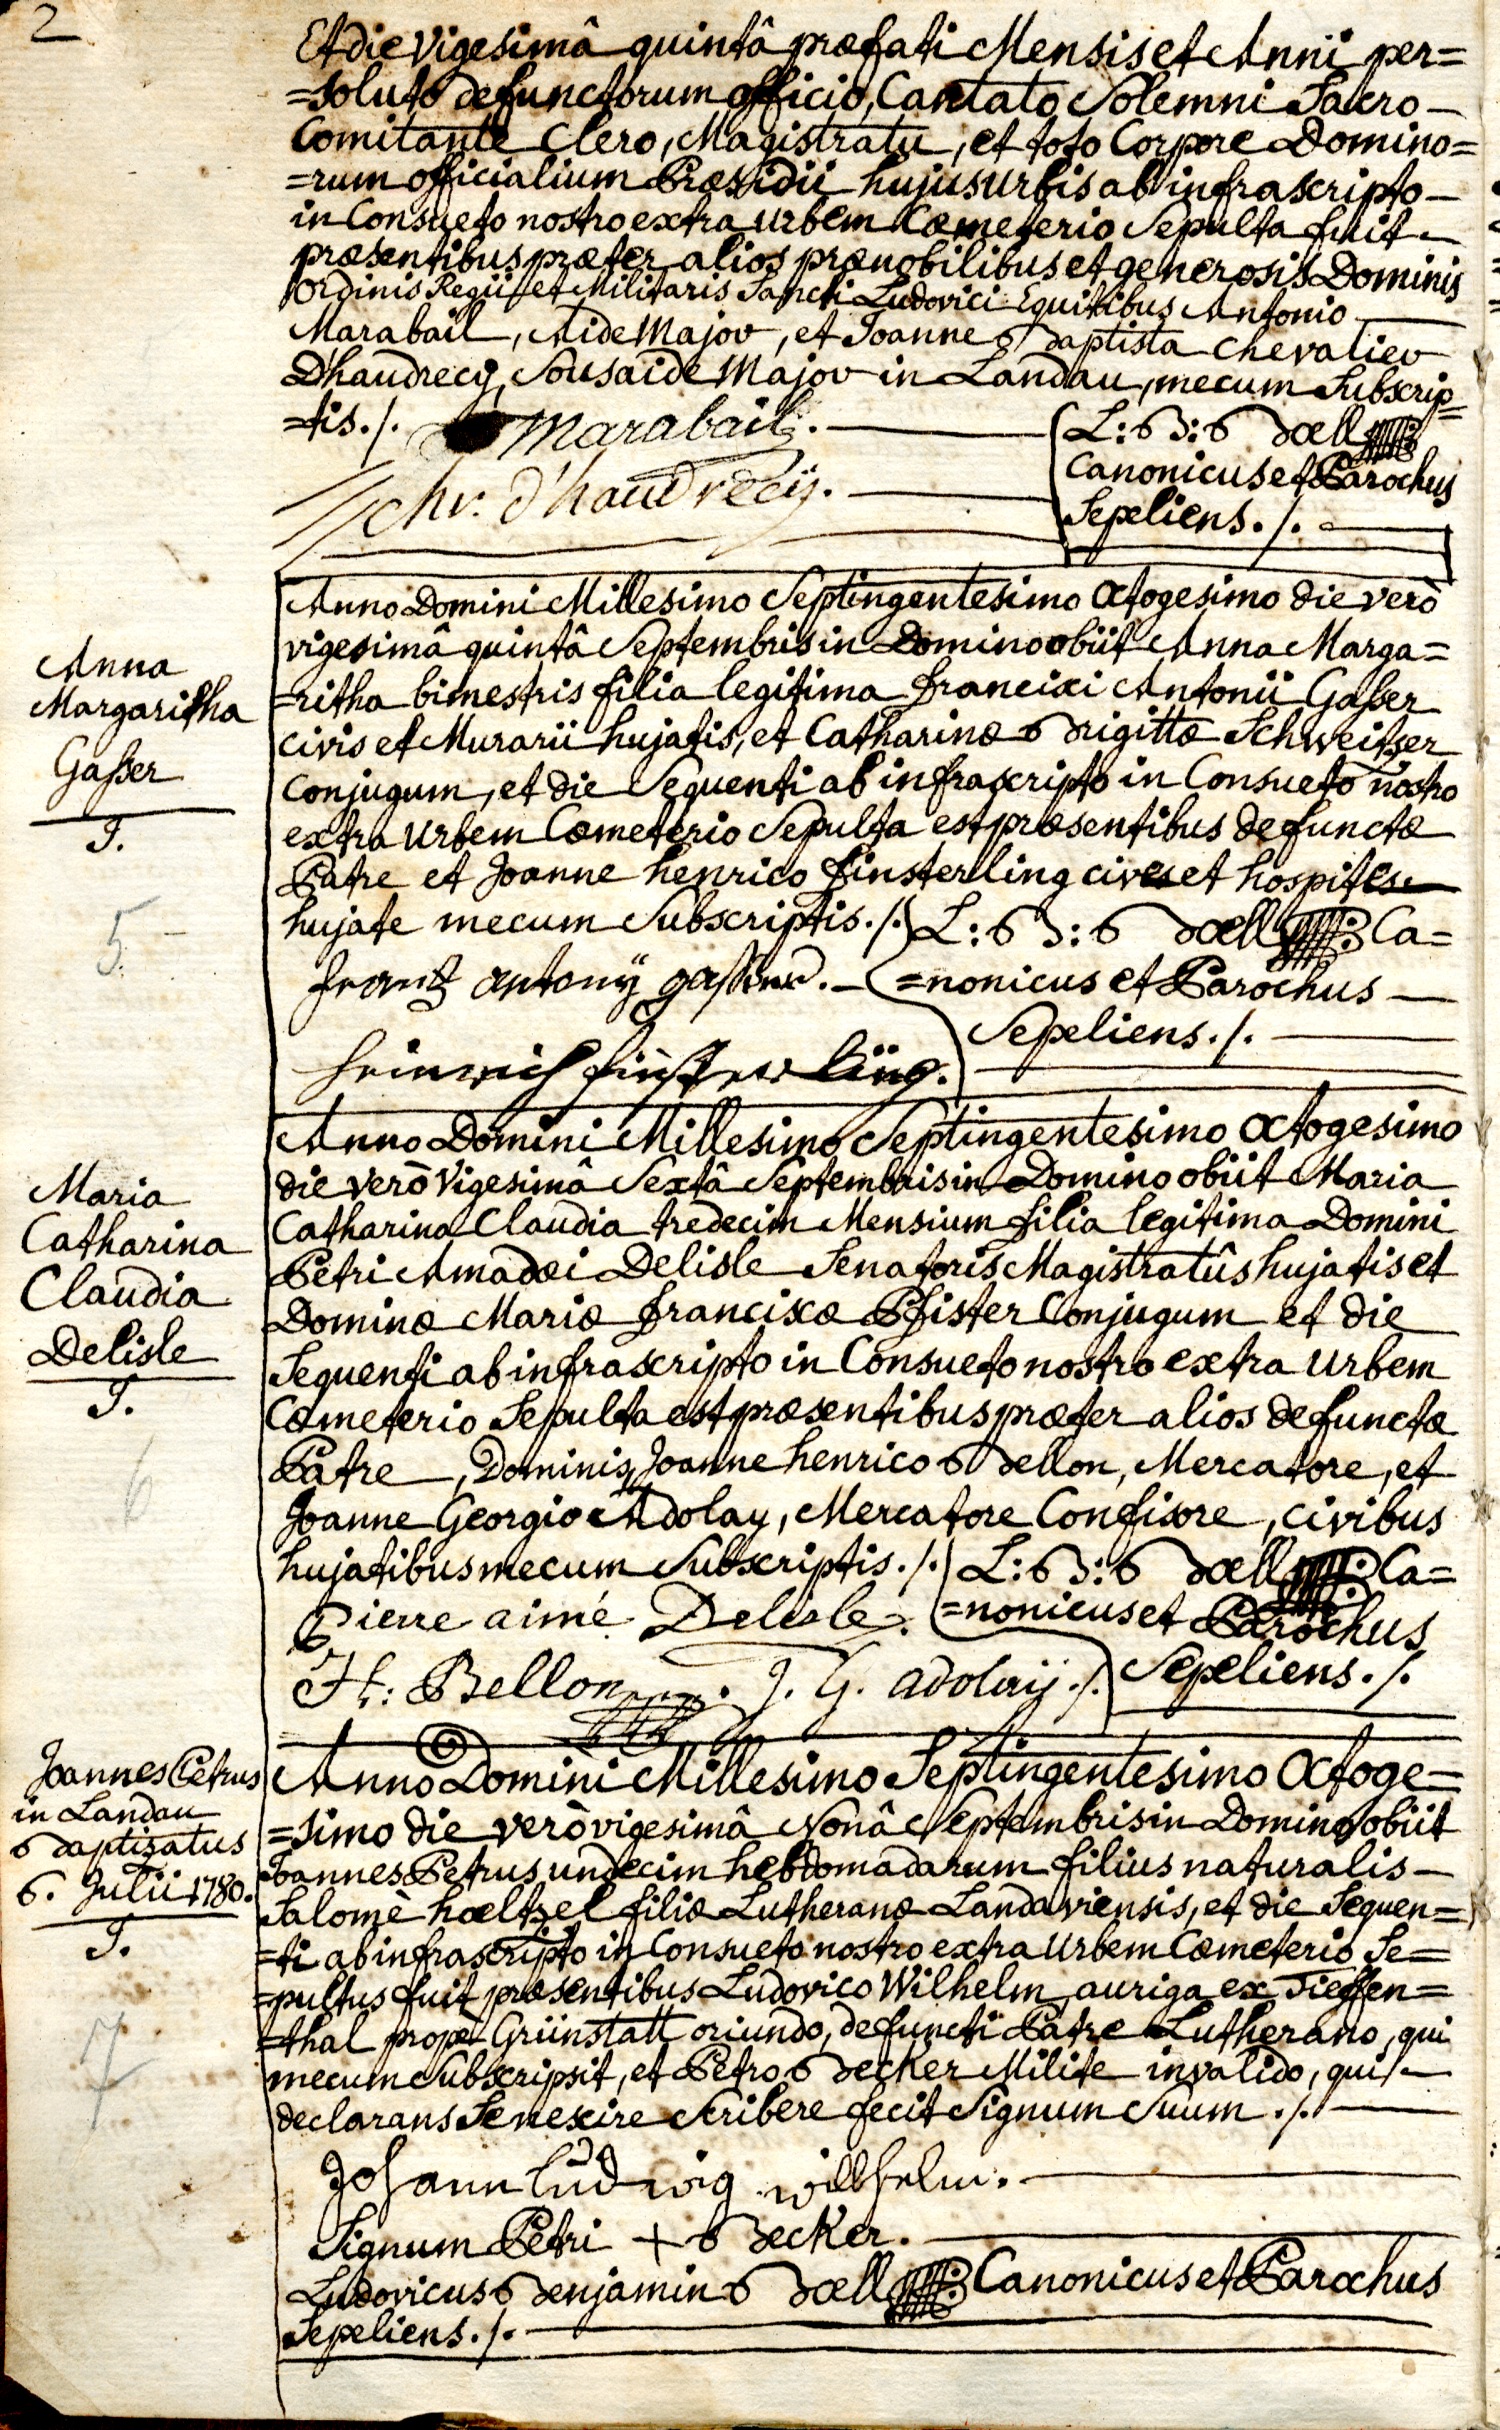 2
Et die vigesimâ quintâ præfati Mensis et Anni per=
=soluto defunctorum officio, Cantato Solemni Sacro
Comitante Clero, Magistratu, et toto Corpore Domino=
=rum officialium Præsidii hujus urbis ab infrascripto
in Consueto nostro extra urbem Cœmeterio Sepulta fuit
præsentibus præter alios prænobilibus et generosis Dominis
Ordinis Regii et Militaris Sancti Ludovici Equitibus Antonio
Marabail, Aide Major, et Joanne Baptista Chevalier
D'haudrecÿ, Sousaide Major in Landau, mecum Subscrip=
=tis./. Marabail.
L: B: Bœll
Canonicus et Parochus
Sepeliens./.
chr. d'haudrecÿ.
Anna
Margaritha
Gaßer
T.
5.
Anno Domini Millesimo Septingentesimo Octogesimo die verò
vigesimâ quintâ Septembris in Domino obiit Anna Marga=
=ritha bimestris filia legitima Francisci Antonii Gaßer
civis et Murarii hujatis, et Catharinæ Brigittæ Schweitzer
Conjugum, et die Sequenti ab infrascripto in Consueto nostro
extra urbem Cœmeterio Sepulta est præsentibus defunctæ
Patre et Joanne henrico Finsterling cive et hospite
hujate mecum Subscriptis./. L: B: Bœll Ca=
=nonicus et Parochus
Sepeliens./.
frantz antony gasser.
heinrich finsterling.
Maria
Catharina
Claudia
Delisle
T.
6
Anno Domini Millesimo Septingentesimo Octogesimo
die verò Vigesimâ Sextâ Septembris in Domino obiit Maria
Catharina Claudia tredecim Mensium filia legitima Domini
Petri Amadæi Delisle Senatoris Magistratûs hujatis et
Dominæ Mariæ Franciscæ Pfister Conjugum et die
Sequenti ab infrascripto in Consueto nostro extra urbem
Cœmeterio Sepulta est præsentibus præter alios defunctæ
Patre, Dominis Joanne henrico Bellon, Mercatore, et
Joanne Georgio Adolay, Mercatore Confisore, civibus
hujatibus mecum Subscriptis./. L: B: Bœll Ca=
=nonicus et Parochus
Sepeliens./.
Pierre aimé Delisle.
H: Bellon. J. G. adolaÿ./.
Joannes Petrus
in Landau
Baptizatus
6. Julii 1780.
T.
7
Anno Domini Millesimo Septingentesimo Octoge=
=simo die verò vigesimâ Nonâ Septembris in Domino obiit
Joannes Petrus undecim hebdomadarum filius naturalis
Salomè hœltzel filiæ Lutheranæ Landaviensis, et die Sequen=
=ti ab infrascripto in Consueto nostro extra urbem Cœmeterio Se=
=pultus fuit præsentibus Ludovico Wilhelm auriga ex Tieffen=
=thal propè Grünstatt oriundo, defuncti Patre Lutherano, qui
mecum Subscripsit, et Petro Becker Milite invalido, qui
declarans Se nescire Scribere fecit Signum Suum./.
Johann ludwig willhelm.
Signum Petri + Becker.
Ludovicus Benjamin Bœll Canonicus et Parochus
Sepeliens./.